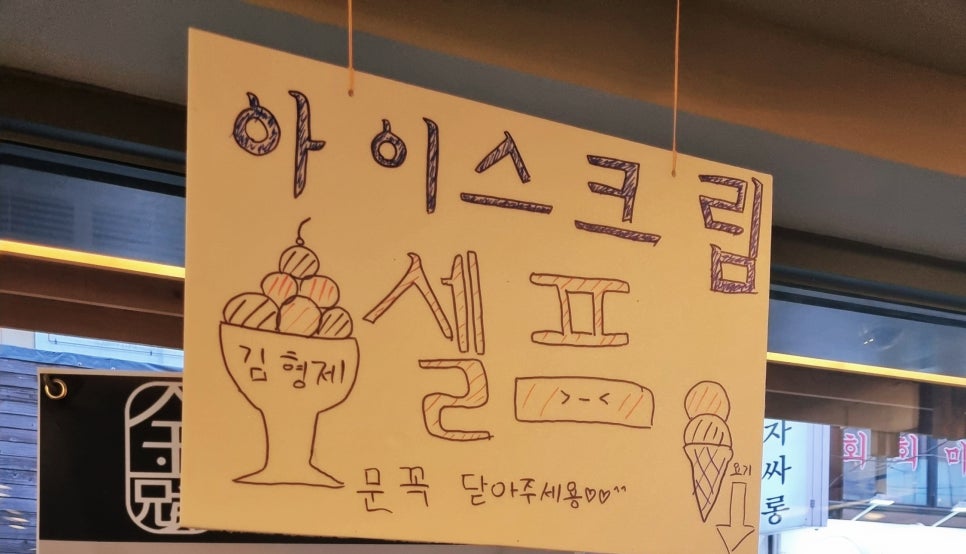 아이스크림
셀프
>-<
김형제
문 꼭 닫아주세용♡♡^^
요기
자싸롱
회 회 미